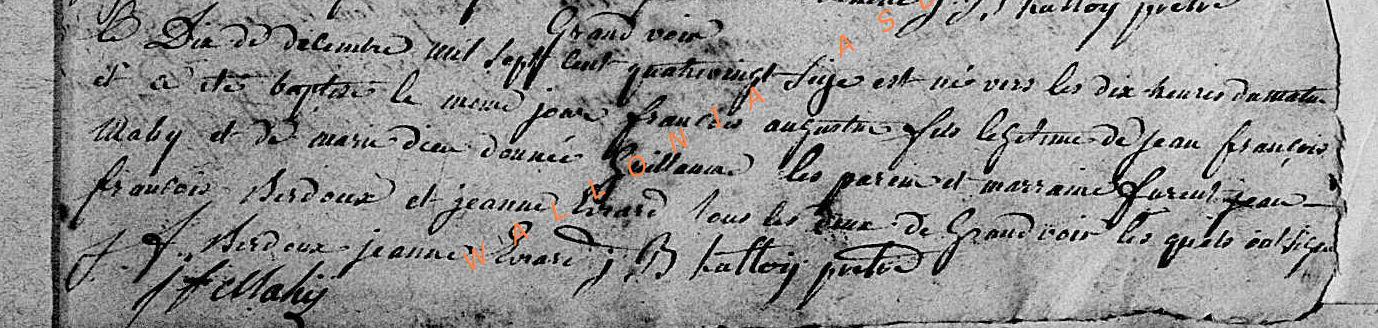 J. B. hattoy prêtre
Grand voir
le Dix de decembre mil sept cent quatrevingt seize est né vers les dix heures du matin
et a été baptisé le meme jour françois augustin fils legitime de jean françois
Mahy et de marie dieu donnée Guillaume les parein et marraine furent jean
françois Berdoux et jeanne Evrard tous les deux de Grandvoir les quels ont signé
J. f. Berdoux jeanne Evrard J B hattoy prêtre
J f Mahy
WALLONIA AS